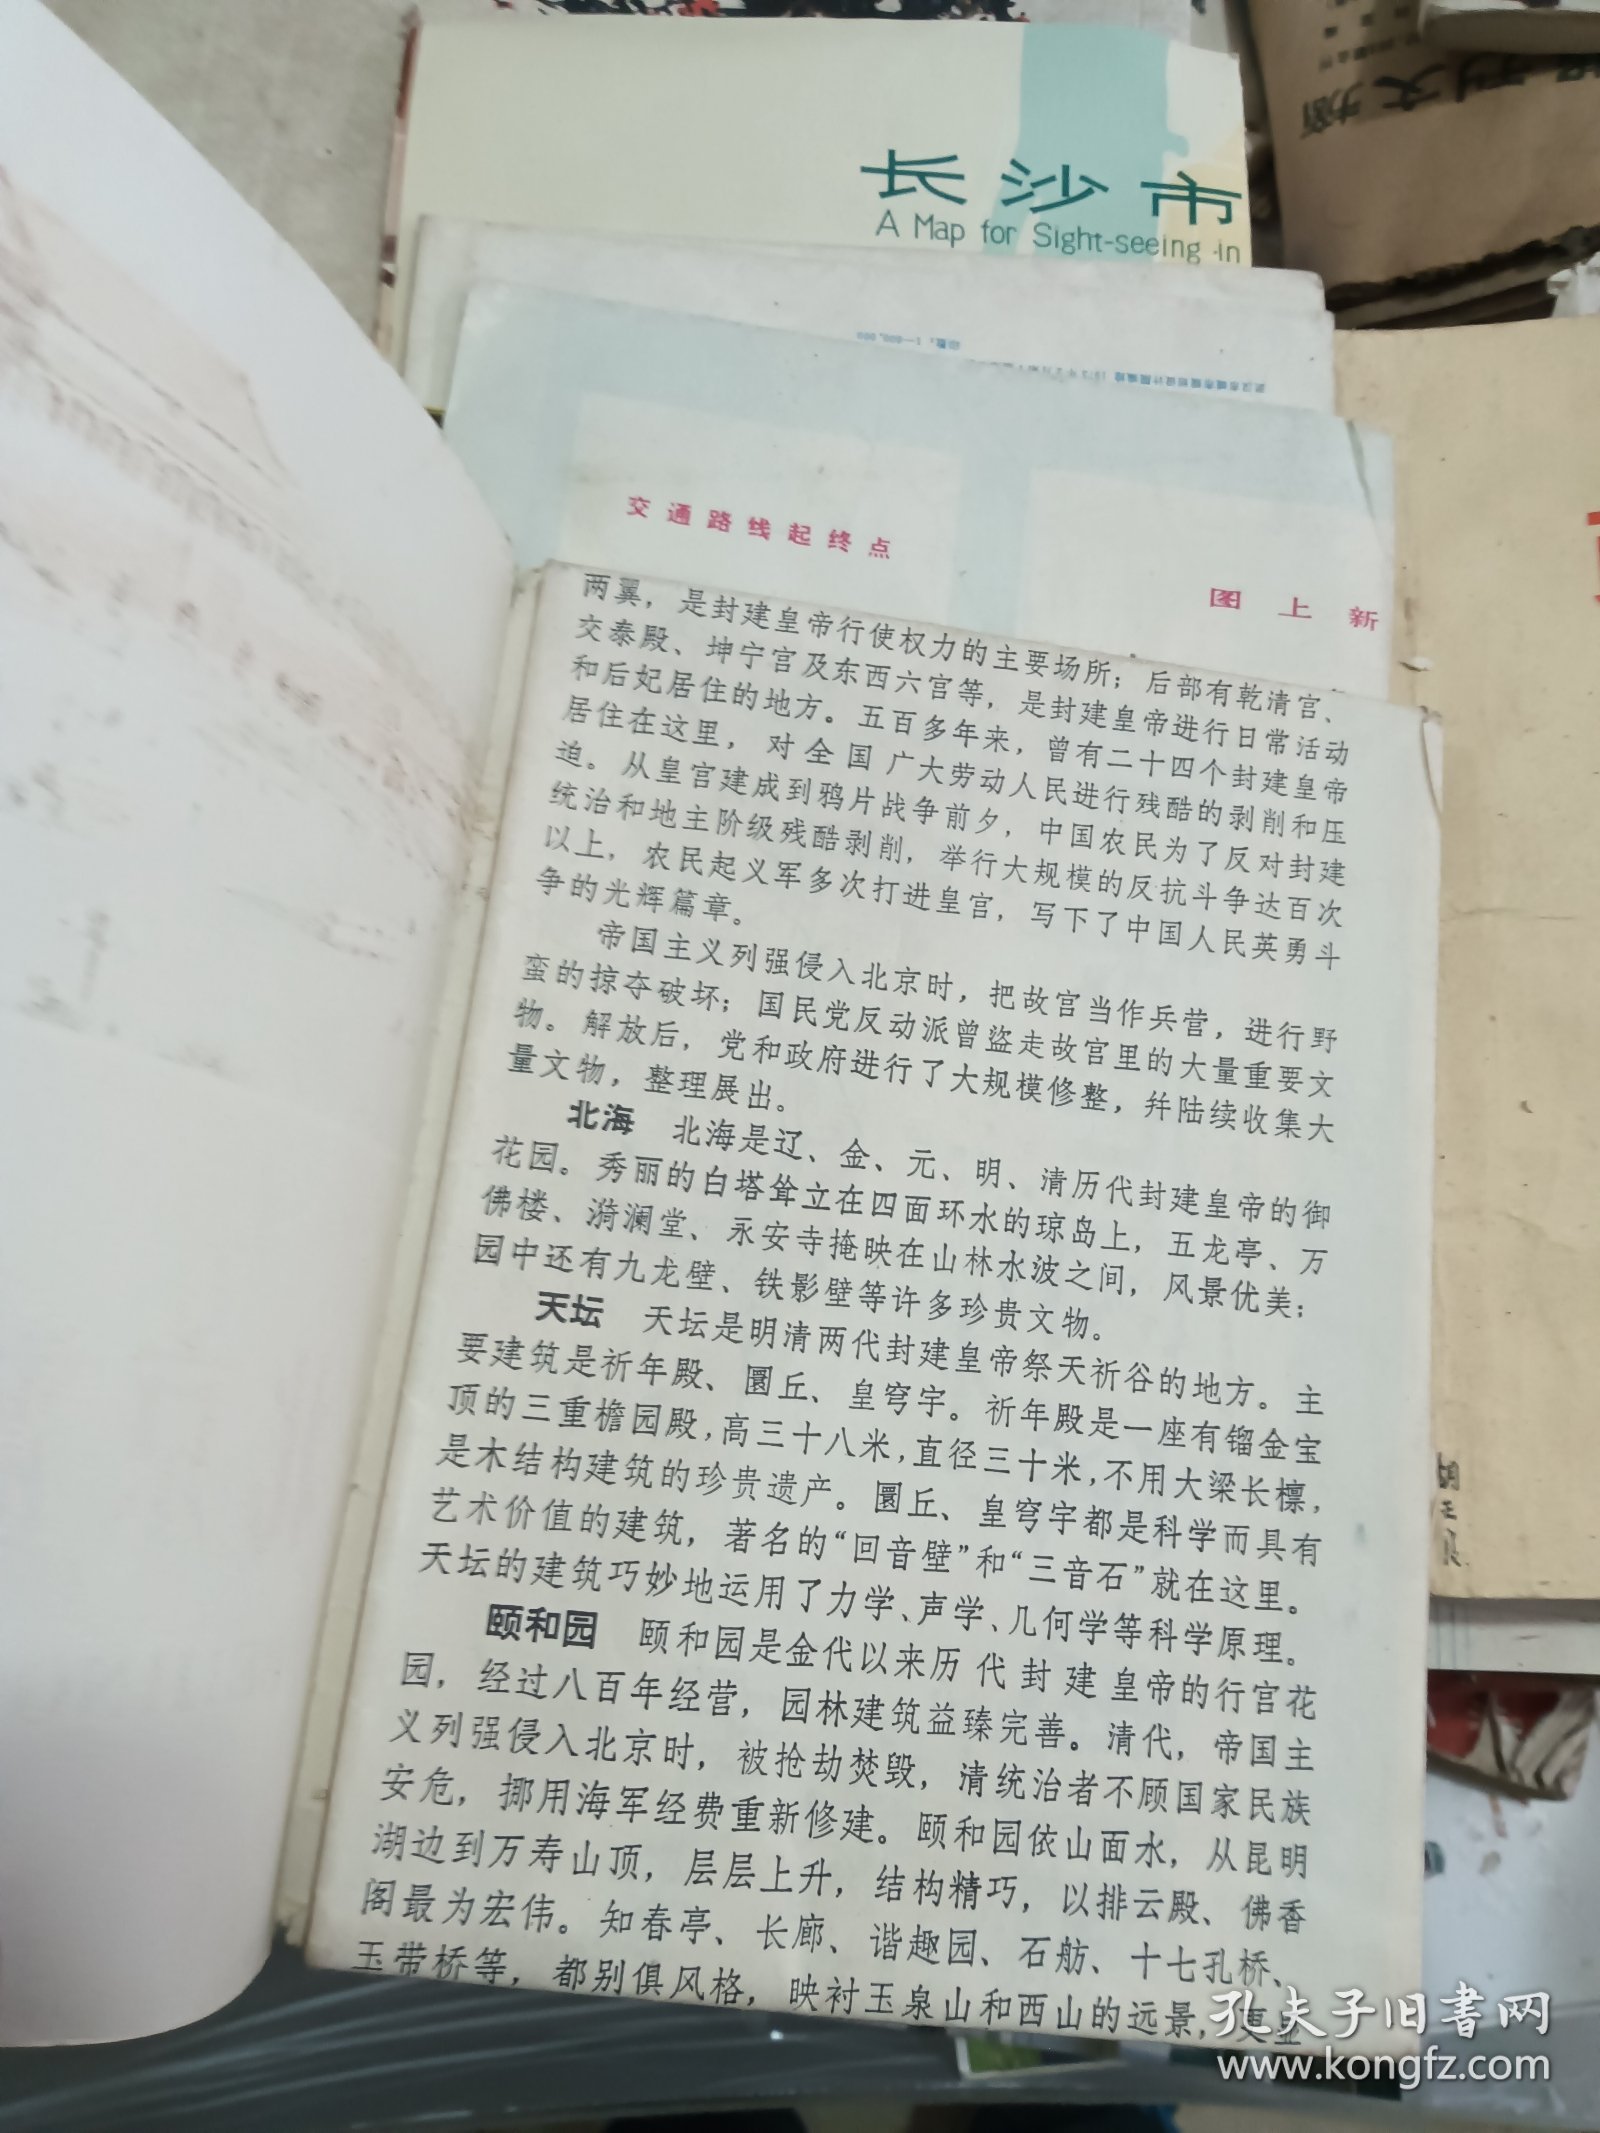 长沙市
A Map for Sight-seeing in
交通路线起终点
图上新
两翼，是封建皇帝行使权力的主要场所；后部有乾清宫、
交泰殿、坤宁宫及东西六宫等，是封建皇帝进行日常活动
和后妃居住的地方。五百多年来，曾有二十四个封建皇帝
居住在这里，对全国广大劳动人民进行残酷的剥削和压
迫。从皇宫建成到鸦片战争前夕，中国农民为了反对封建
统治和地主阶级残酷剥削，举行大规模的反抗斗争达百次
以上，农民起义军多次打进皇宫，写下了中国人民英勇斗
争的光辉篇章。
帝国主义列强侵入北京时，把故宫当作兵营，进行野
蛮的掠夺破坏；国民党反动派曾盗走故宫里的大量重要文
物。解放后，党和政府进行了大规模修整，并陆续收集大
量文物，整理展出。
北海 北海是辽、金、元、明、清历代封建皇帝的御
花园。秀丽的白塔耸立在四面环水的琼岛上，五龙亭、万
佛楼、漪澜堂、永安寺掩映在山林水波之间，风景优美；
园中还有九龙壁、铁影壁等许多珍贵文物。
天坛 天坛是明清两代封建皇帝祭天祈谷的地方。主
要建筑是祈年殿、圜丘、皇穹宇。祈年殿是一座有镏金宝
顶的三重檐园殿，高三十八米，直径三十米，不用大梁长檩，
是木结构建筑的珍贵遗产。圜丘、皇穹宇都是科学而具有
艺术价值的建筑，著名的“回音壁”和“三音石”就在这里。
天坛的建筑巧妙地运用了力学、声学、几何学等科学原理。
颐和园 颐和园是金代以来历代封建皇帝的行宫花
园，经过八百年经营，园林建筑益臻完善。清代，帝国主
义列强侵入北京时，被抢劫焚毁，清统治者不顾国家民族
安危，挪用海军经费重新修建。颐和园依山面水，从昆明
湖边到万寿山顶，层层上升，结构精巧，以排云殿、佛香
阁最为宏伟。知春亭、长廊、谐趣园、石舫、十七孔桥、
玉带桥等，都别俱风格，映衬玉泉山和西山的远景，更显
孔夫子旧书网
www.kongfz.com